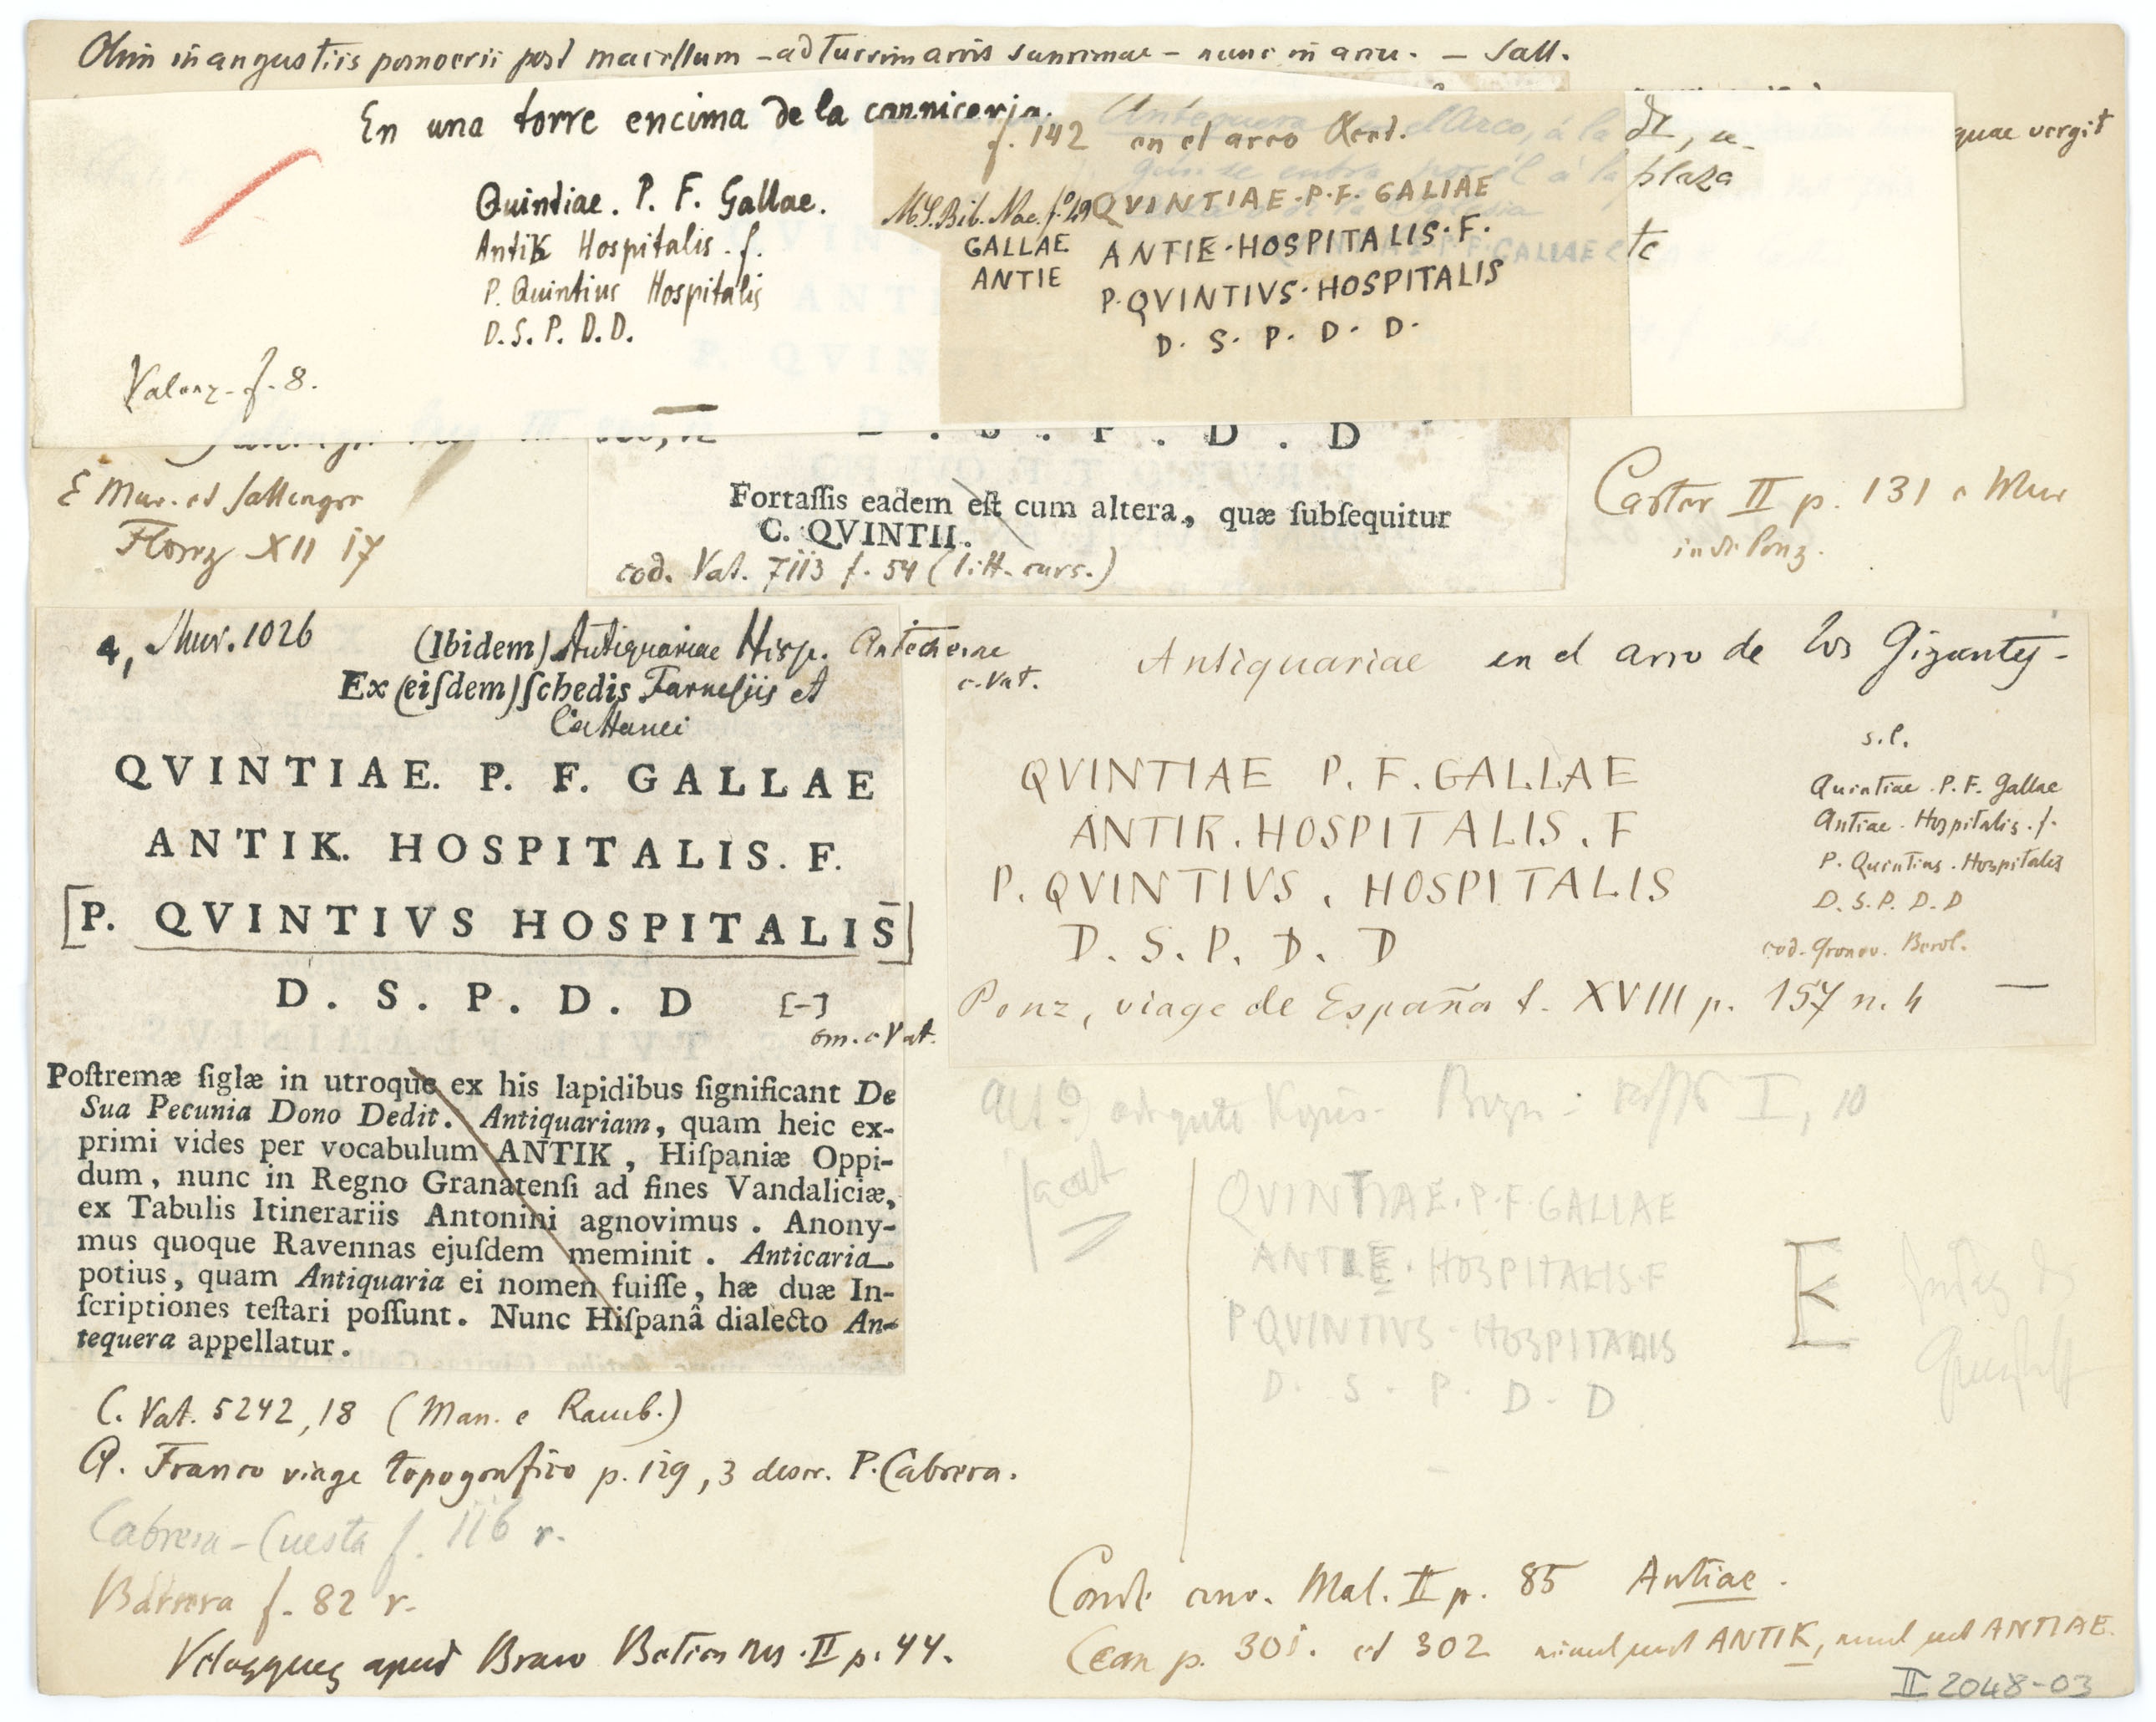 Olim in angustiis pomoerii post macellum - ad turrim arcis - nunc in arcu. - Sall.
quae vergit
En una torre encima de la carniceria.
Quindiae. P. F. Gallae.
Antik Hospitalis. f.
P. Quintius Hospitalis
D. S. P. D. D.
Valenz. f. 8.
f. 142 en el arco
MS. Bib. Nac. f.º 49
GALLAE
ANTIE
QVINTIAE·P·F·GALIAE
ANTIE·HOSPITALIS·F·
P·QVINTIVS·HOSPITALIS
D· S· P· D· D·
plaza
te
D . S . P . D . D
Fortassis eadem est cum altera, quæ subsequitur
C. QVINTII.
cod. Vat. 7113 f. 54 (litt. curs.)
E Mur. et Sallengre
Florez XII 17
Carter II p. 131 e Mur
inde Ponz.
4, Mur. 1026 (Ibidem) Antiquariae Hisp. Antecherae
c. Vat.
Ex (eisdem) schedis Farnesiis et
Cattanei
QVINTIAE. P. F. GALLAE
ANTIK. HOSPITALIS. F.
[P. QVINTIVS HOSPITALIS]
D . S . P . D . D [-]
om. c Vat.
Postremæ siglæ in utroque ex his lapidibus significant De
Sua Pecunia Dono Dedit. Antiquariam, quam heic ex-
primi vides per vocabulum ANTIK, Hispaniæ Oppi-
dum, nunc in Regno Granatensi ad fines Vandaliciæ,
ex Tabulis Itinerariis Antonini agnovimus. Anony-
mus quoque Ravennas ejusdem meminit. Anticaria
potius, quam Antiquaria ei nomen fuisse, hæ duæ In-
scriptiones testari possunt. Nunc Hispanâ dialecto An-
tequera appellatur.
Antiquariae en el arco de los Gigantes-
QVINTIAE P. F. GALLAE
ANTIK. HOSPITALIS. F
P. QVINTIVS. HOSPITALIS
D. S. P. D. D
Ponz, viage de España t. XVIII p. 157 n. 4 —
s.l.
Quintiae. P. F. Gallae
Antiae. Hospitalis. f.
P. Quintius. Hospitalis
D. S. P. D. D
cod. Gronov. Berol.
I, 10
QVINTIAE·P·F·GALLAE
ANTIE·HOSPITALIS·F
P QVINTIVS·HOSPITALIS
D· S· P· D· D
E
C. Vat. 5242, 18 (Man. e Ramb.)
A. Franco viage topografico p. 129, 3 descr. P. Cabrera.
Cabrera-Cuesta f. 116 r.
Barrera f. 82 r.
Velazquez apud Bravo Betica ms. II p. 44.
Conde conv. Mal. II p. 85 Antiae.
Cean p. 301. et 302 simul ANTIK, ANTIAE.
II 2048-03